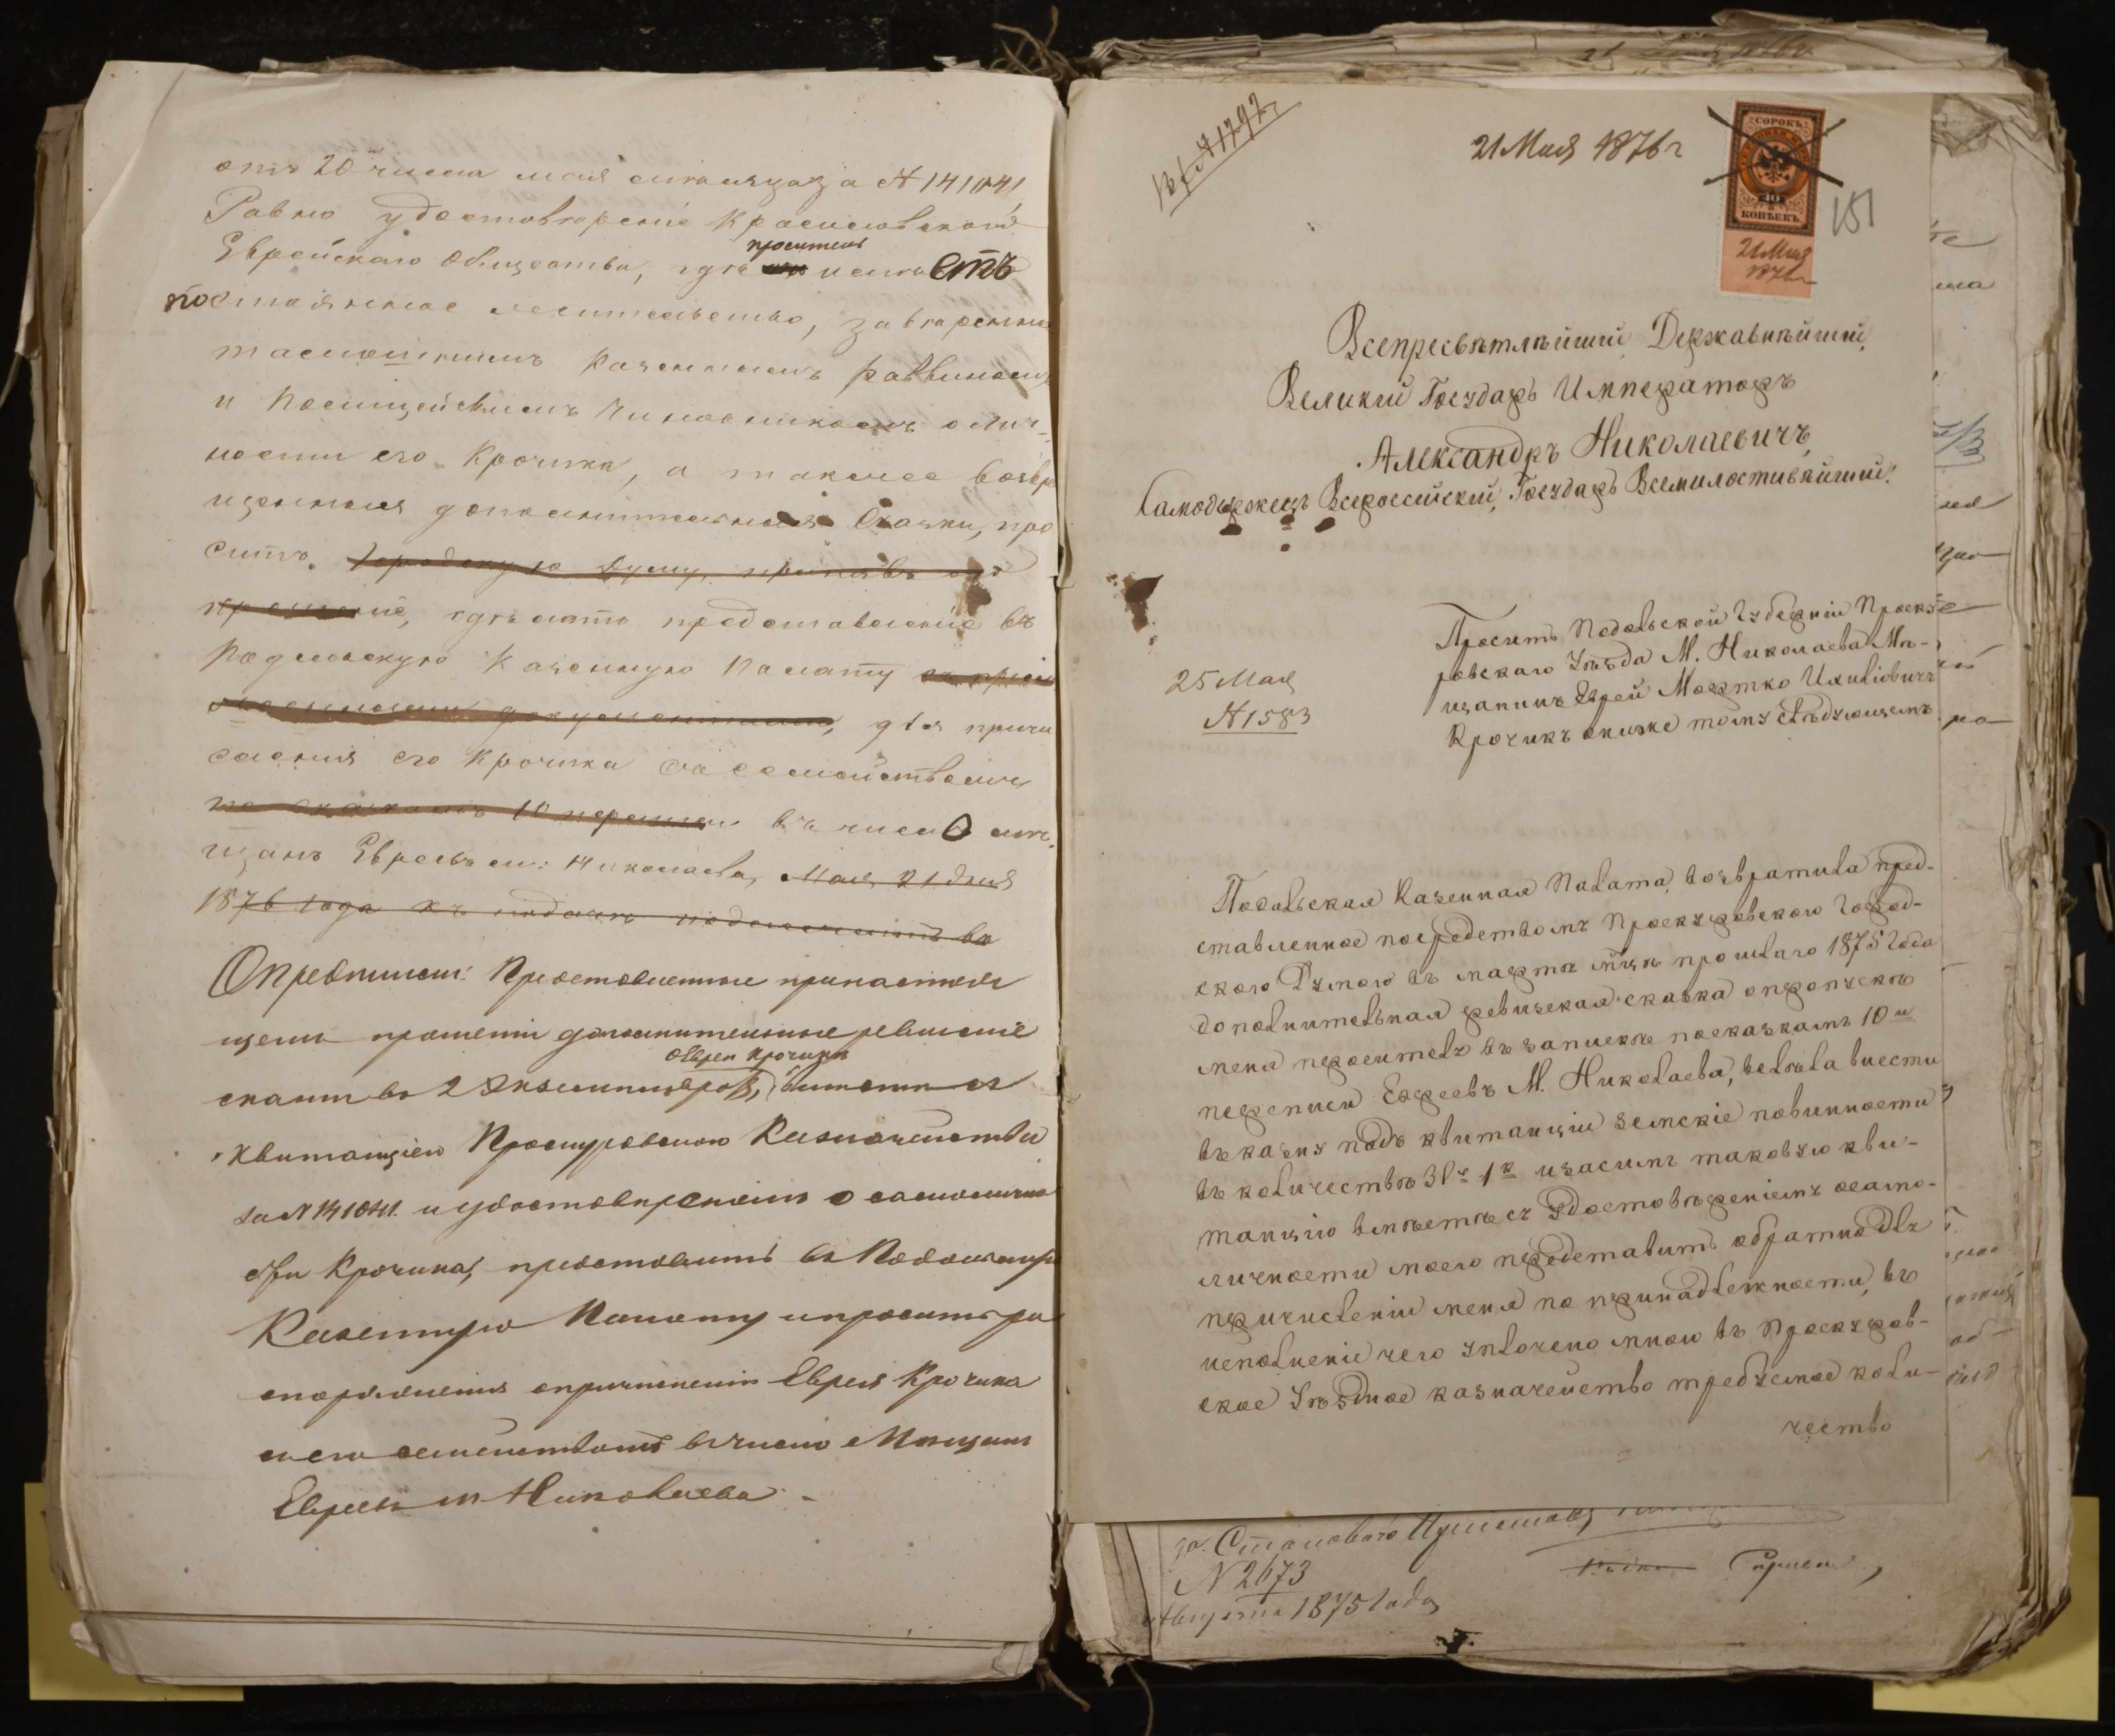 отъ 20 числа мая сего мѣсяца за № 1410441
Равно удостовѣреніе Красиловскаго
проситель
Еврейскаго общества, гдѣ имѣетъ
постоянное жительство, завѣренны
тамошнимъ казеннымъ раввиномъ
и Полицейскимъ Чиновникомъ о лич-
ности его Крочика, а также возвра
щенныя дополнительныя сказки, про
ситъ. Городскую Думу, принявъ
прошеніе, сдѣлать представленіе въ
Подольскую Казенную Палату
документами, для причи
сленія его Крочика съ семействомъ
по сказкамъ 10 переписи въ число мѣ-
щанъ Евреевъ м: Николаева, Мая 21 дня
1876 года къ подачѣ надлежитъ въ
Опредѣлили: Представленные при настоя
щемъ прошеніи дополнительныя ревизскіе
Еврея Крочика
сказки въ 2 экземплярахъ, вмѣстѣ съ
квитанціею Проскуровскаго Казначейства
за № 1410441. и удостовѣреніемъ о самолично
сти Крочика, представить въ Подольскую
Казенную Палату и просить ра
споряженія о причисленіи Еврея Крочика
съ его семействомъ въ число Мѣщанъ
Евреевъ м. Николаева. -
№ 1797
21 Мая 1876 г
СОРОКЪ
40
КОПѢЕКЪ
21 Мая
1876 г
151
Всепресвѣтлѣйшій, Державнѣйшій,
Великій Государь Императоръ
Александръ Николаевичъ,
Самодержецъ Всероссійскій, Государь Всемилостивѣйшій!
25 Мая
№ 1583
Проситъ Подольской Губерніи Проску-
ровскаго Уѣзда М. Николаева Мѣ-
щанинъ Еврей Мортко Ихиліовичъ
Крочикъ а ниже тому слѣдующемъ
Подольская Казенная Палата, возвратила пред-
ставленное посредствомъ Проскуровскою Город-
скою Думою въ мартѣ мѣцѣ прошлаго 1875 года
дополнительная ревизская сказка о пропускѣ
меня просителя въ запискѣ по сказкамъ 10й
переписи Евреевъ М. Николаева, велѣла внести
въ казну подъ квитанціи земскіе повинности
въ количествѣ 31 р 1 к и засимъ таковую кви-
танцію вмѣстѣ съ удостовѣреніемъ о само-
личности моего представить обратно для
причисленіи меня по принадлежности, въ
исполненіе чего уплочено мною въ Проскуров-
ское Уѣздное казначейство требуемое коли-
чество
за. Становаго Пристава
№ 2673
Августа 1875 года